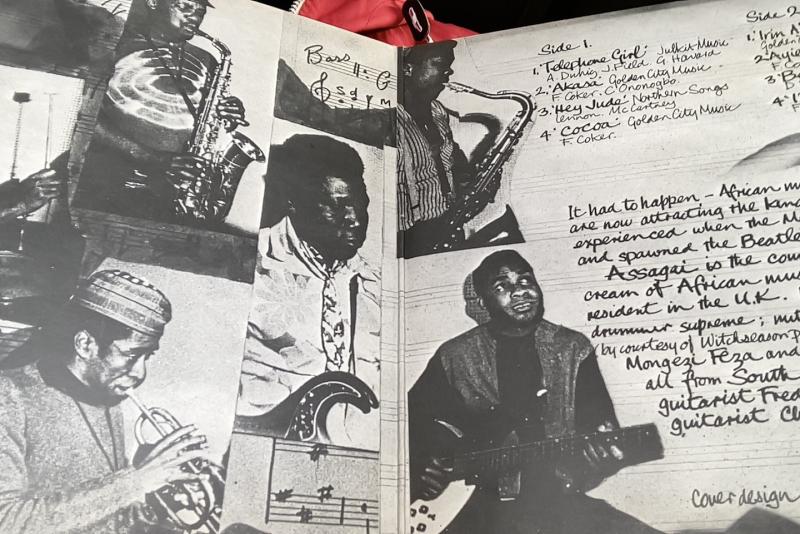 Bass
G
S d f m
Side 1.
1. 'Telephone Girl': Julkit Music
A. Duhig, J. Field, G. Havard
2. 'Akasa' Golden City Music
F. Coker. C. Ononogbo.
3. 'Hey Jude' Northern Songs
Lennon. McCartney
4. 'Cocoa': Golden City Music
F. Coker.
Side 2
1. 'Irin A
Golden
2. 'Ayie
F. C
3. 'Be
4. 'I
It had to happen – African m
are now attracting the kind
experienced when the M
and spawned the Beatle
Assagai is the cou
cream of African mus
resident in the U.K.
drummer supreme;
(by courtesy of Witchseason P
Mongezi Feza and
all from South
guitarist Fred
guitarist Cl
Cover design